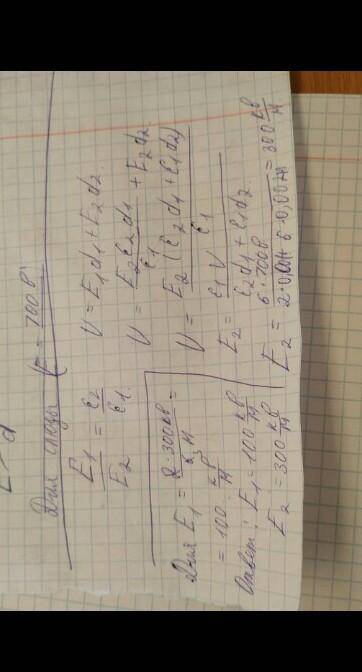 E > d
Для слюды U = 700 В
E1/E2 = ε2/ε1
U = E1d1 + E2d2
U = E2ε2d1/ε1 + E2d2
U = E2(ε2d1 + ε1d2)/ε1
E2 = ε1U/(ε2d1 + ε1d2)
E2 = 6·700В/(2·0,001 + 6·0,002) = 300 кВ/м
Для E1 = 2·300кВ/м =
= 100 кВ/м
Ответ: E1 = 100 кВ/м
E2 = 300 кВ/м